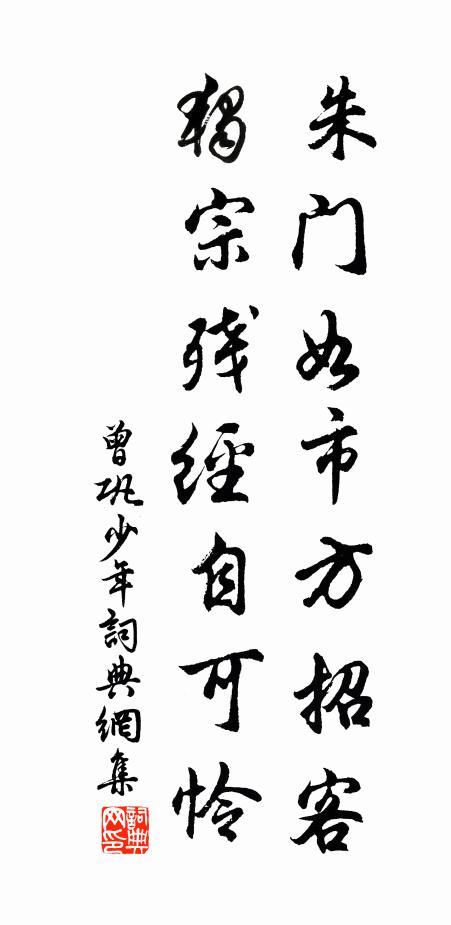 朱门如市方招客
独宗残經自可怜
曾巩少年詞典網集
詞典网印